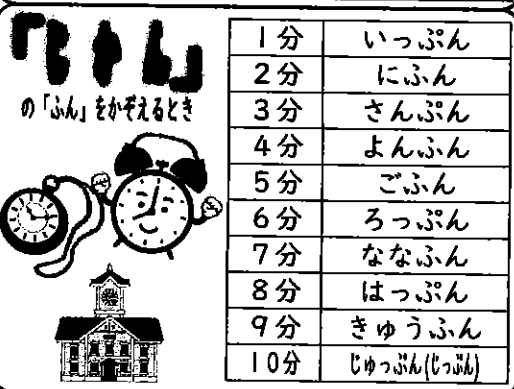 の「ふん」をかぞえるとき
1分 いっぷん
2分 にふん
3分 さんぷん
4分 よんふん
5分 ごふん
6分 ろっぷん
7分 ななふん
8分 はっぷん
9分 きゅうふん
10分 じゅっぷん(じっぷん)